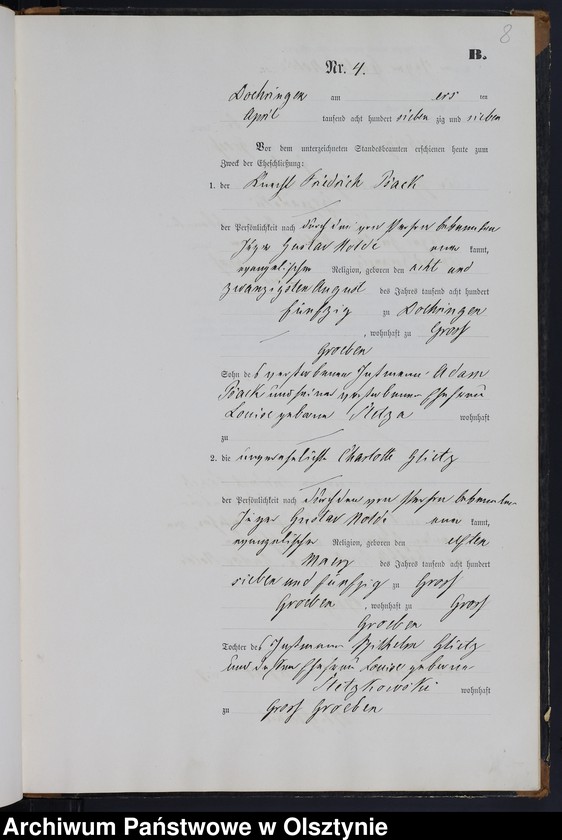 8
B.
Nr. 4.
Doehringen am ers ten
April tausend acht hundert sieben zig und sieben
Vor dem unterzeichneten Standesbeamten erschienen heute zum
Zweck der Eheschließung:
1. der Knecht Friedrich Back
der Persönlichkeit nach durch den von Person bekannten
Jäger Gustav Nolde aner kannt,
evangelischer Religion, geboren den acht und
zwanzigsten August des Jahres tausend acht hundert
fünfzig zu Doehringen
, wohnhaft zu Gross
Groeben
Sohn des verstorbenen Instmann Adam
Back und seiner verstorbenen Ehefrau
Louise geborne wohnhaft
zu
2. die unverehelichte Charlotte Glietz
der Persönlichkeit nach durch den von Person bekannten
Jäger Gustav Nolde aner kannt,
evangelischer Religion, geboren den elften
Maerz des Jahres tausend acht hundert
sieben und fünfzig zu Gross
Groeben , wohnhaft zu Gross
Groeben
Tochter des Instmann Wilhelm Glietz
und dessen Ehefrau Louise geborne
Stetzkowski wohnhaft
zu Gross Groeben
Archiwum Państwowe w Olsztynie